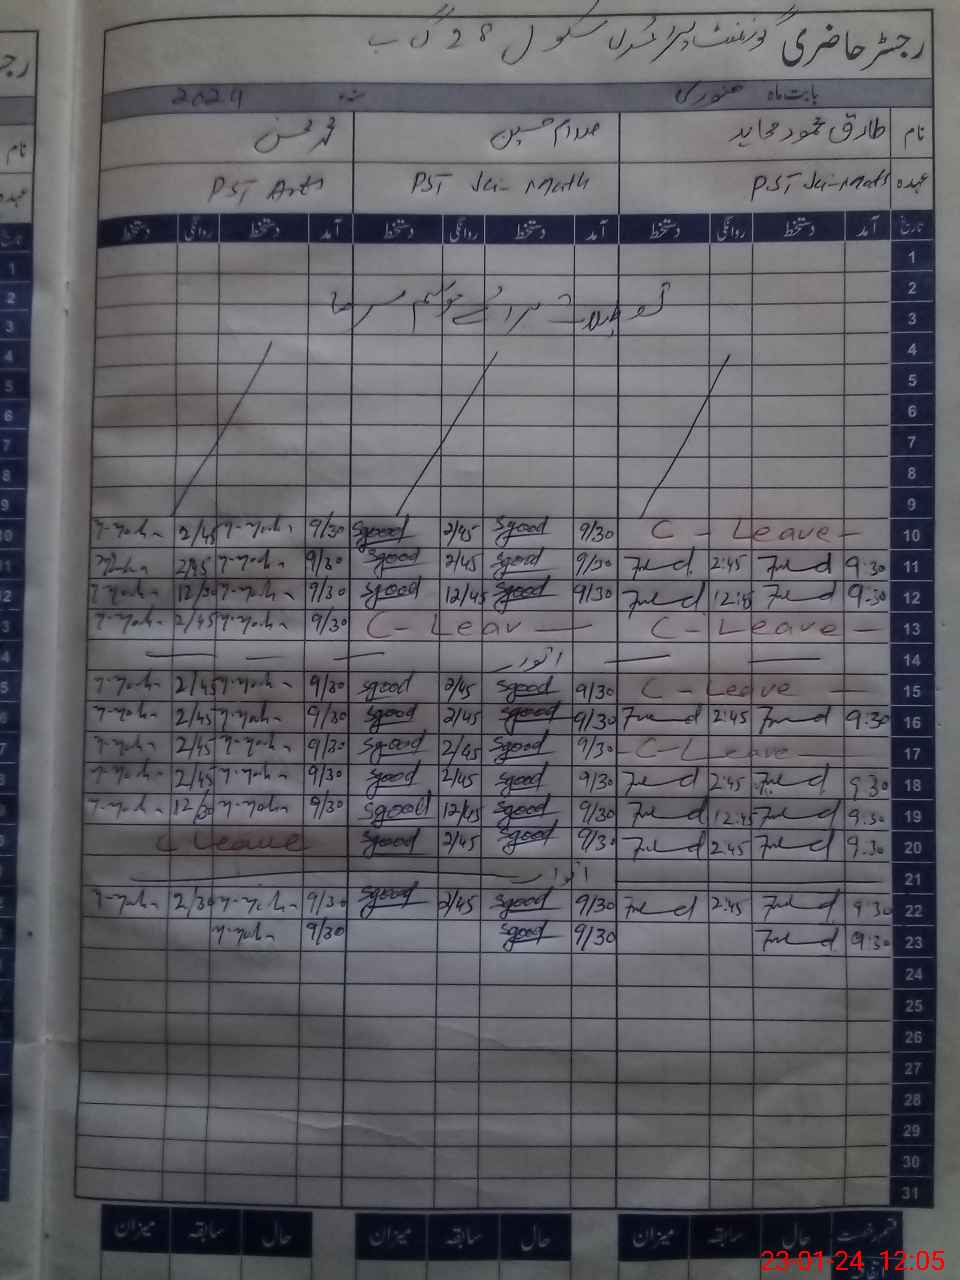 رجسٹر حاضری گورنمنٹ پرائمری سکول 28 گ ب
بابت ماہ جنوری سنہ 2024
نام طارق محمود مجاہد صدام حسین محمد محسن
عہدہ PST Sci-Math PST Sci-Math PST Arts
تاریخ آمد دستخط روانگی دستخط آمد دستخط روانگی دستخط آمد دستخط روانگی دستخط
1
2 تعطیلات برائے موسم سرما
3
4
5
6
7
8
9
10 C - Leave - 9/30 Sgood 2/45 Sgood 9/30 2/45
11 9:30 2:45 9/30 Sgood 2/45 Sgood 9/30 2/45
12 9:30 12:45 9/30 Sgood 12/45 Sgood 9/30 12/30
13 C - Leave - C - Leav 9/30 2/45
14 اتوار
15 C - Leave 9/30 Sgood 2/45 Sgood 9/30 2/45
16 9:30 2:45 9/30 Sgood 2/45 Sgood 9/30 2/45
17 C - Leave 9/30 Sgood 2/45 Sgood 9/30 2/45
18 9:30 2:45 9/30 Sgood 2/45 Sgood 9/30 2/45
19 9:30 12:45 9/30 Sgood 12/45 Sgood 9/30 12/30
20 9:30 2:45 9/30 Sgood 2/45 Sgood C Leave
21 اتوار
22 9:30 2:45 9/30 Sgood 2/45 Sgood 9/30 2/30
23 9:30 9/30 Sgood 9/30
24
25
26
27
28
29
30
31
حال سابقہ میزان حال سابقہ میزان حال سابقہ میزان
23-01-24 12:05